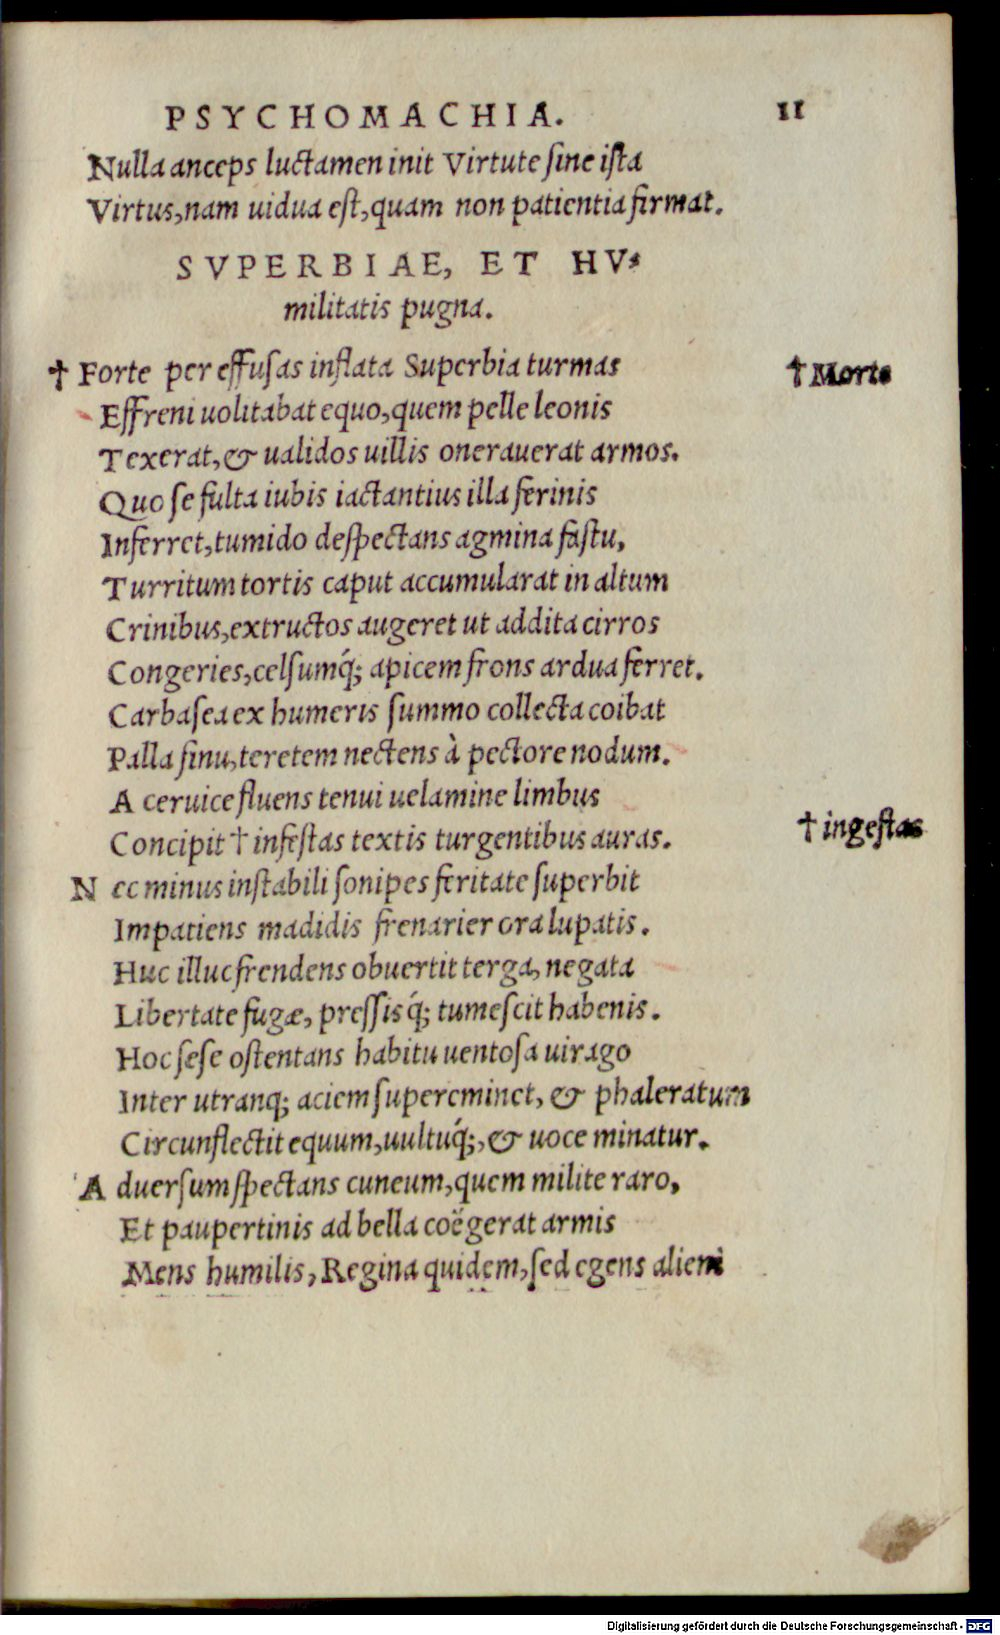 PSYCHOMACHIA. 11
Nulla anceps luctamen init Virtute sine ista
Virtus, nam uidua est, quam non patientia firmat.
SVPERBIAE, ET HV-
militatis pugna.
† Forte per effusas inflata Superbia turmas † Morte
Effreni uolitabat equo, quem pelle leonis
Texerat, & ualidos uillis onerauerat armos.
Quo se fulta iubis iactantius illa ferinis
Inferret, tumido despectans agmina fastu,
Turritum tortis caput accumularat in altum
Crinibus, extructos augeret ut addita cirros
Congeries, celsumq́; apicem frons ardua ferret.
Carbasea ex humeris summo collecta coibat
Palla sinu, teretem nectens à pectore nodum.
A ceruice fluens tenui uelamine limbus
Concipit † infestas textis turgentibus auras. † ingestas
Nec minus instabili sonipes feritate superbit
Impatiens madidis frenarier ora lupatis.
Huc illuc frendens obuertit terga, negata
Libertate fugæ, pressisq́; tumescit habenis.
Hoc sese ostentans habitu uentosa uirago
Inter utranq; aciem supereminet, & phaleratum
Circunflectit equum, uultuq́;, & uoce minatur.
Aduersum spectans cuneum, quem milite raro,
Et paupertinis ad bella coëgerat armis
Mens humilis, Regina quidem, sed egens alieni
Digitalisierung gefördert durch die Deutsche Forschungsgemeinschaft - DFG